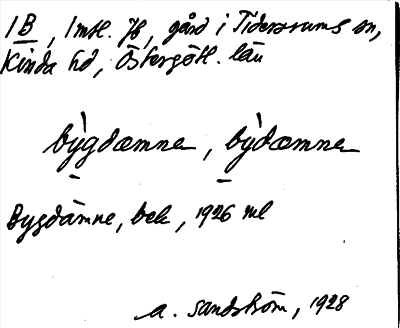 1 B, 1 mtl. , gård i Tidersrums sn,
Kinda hd, Östergötl. län
bỳgdæmne, bỳdæmne
Bygdämne, bek, 1926 ml
A. Sandström, 1928